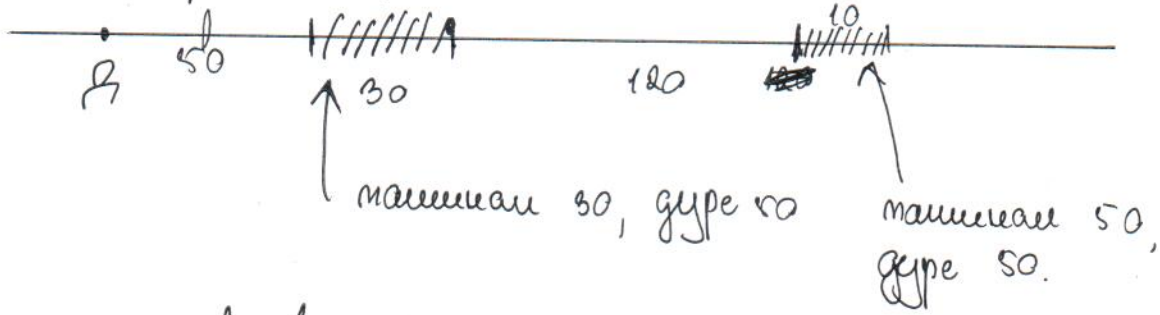 10
50
Д 30 120
машинам 30, дуре 50
машинам 50,
дуре 50.